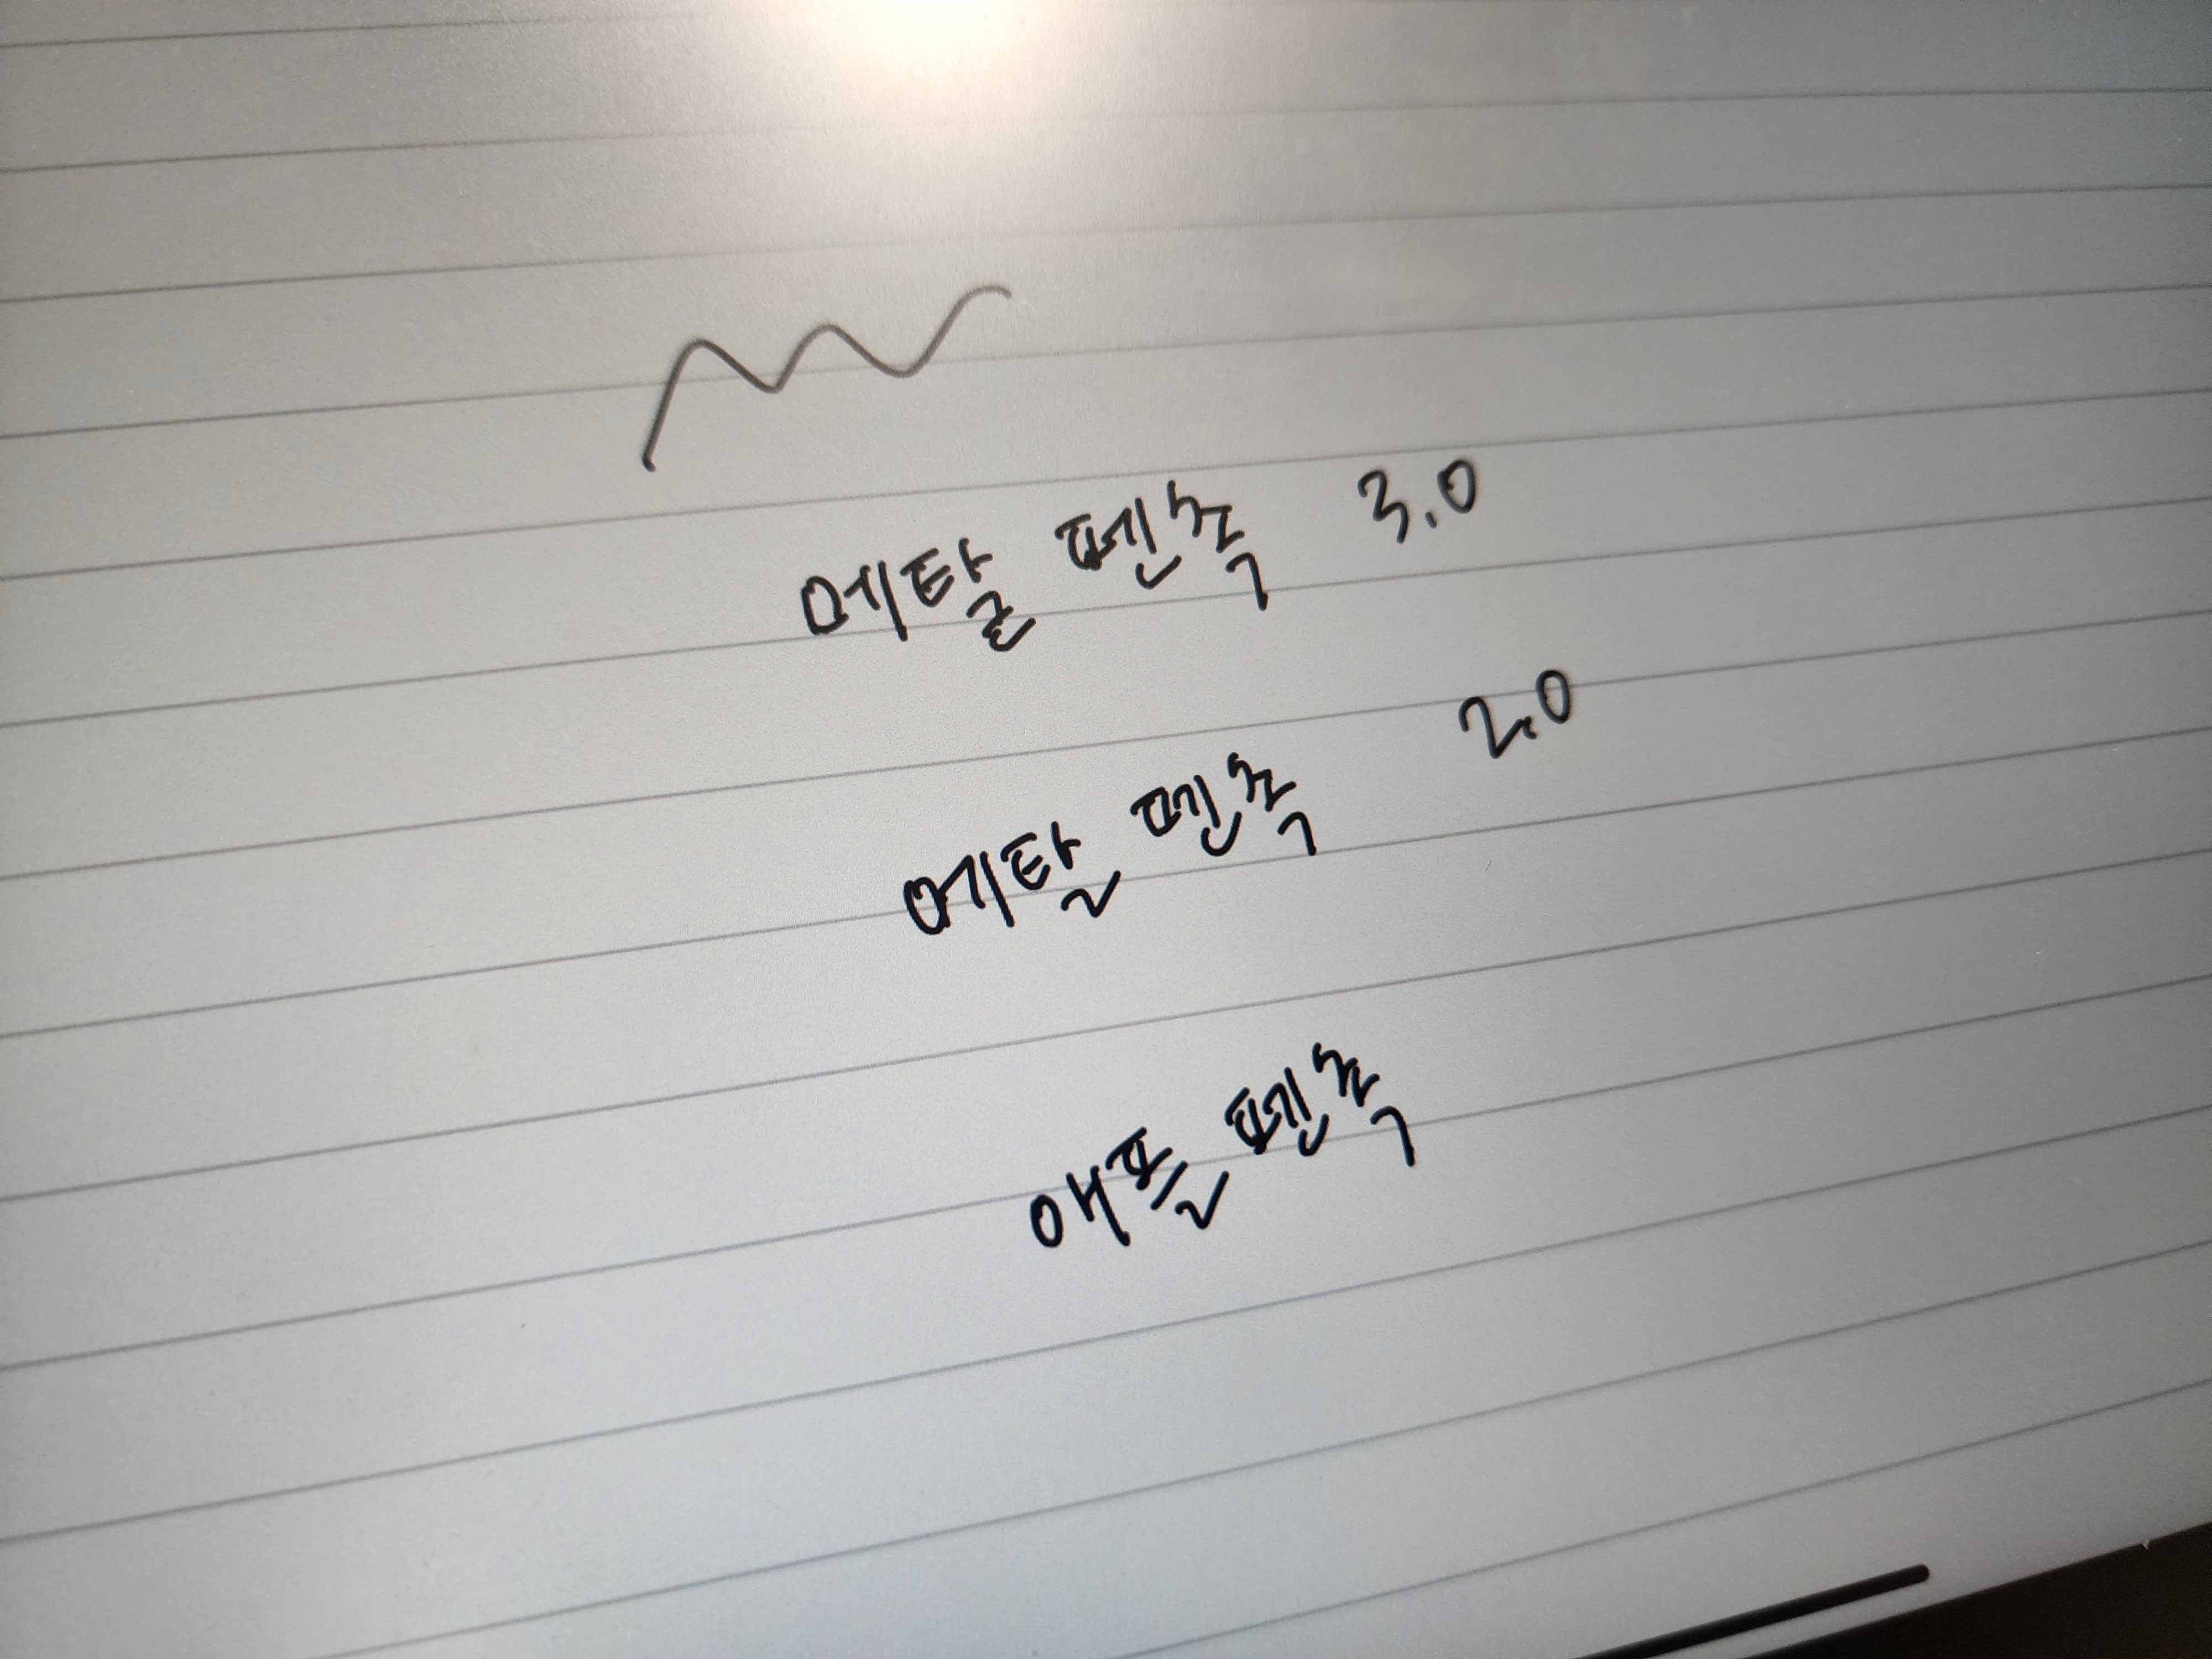 메탈 펜촉 3.0
메탈 펜촉 2.0
애플 펜촉